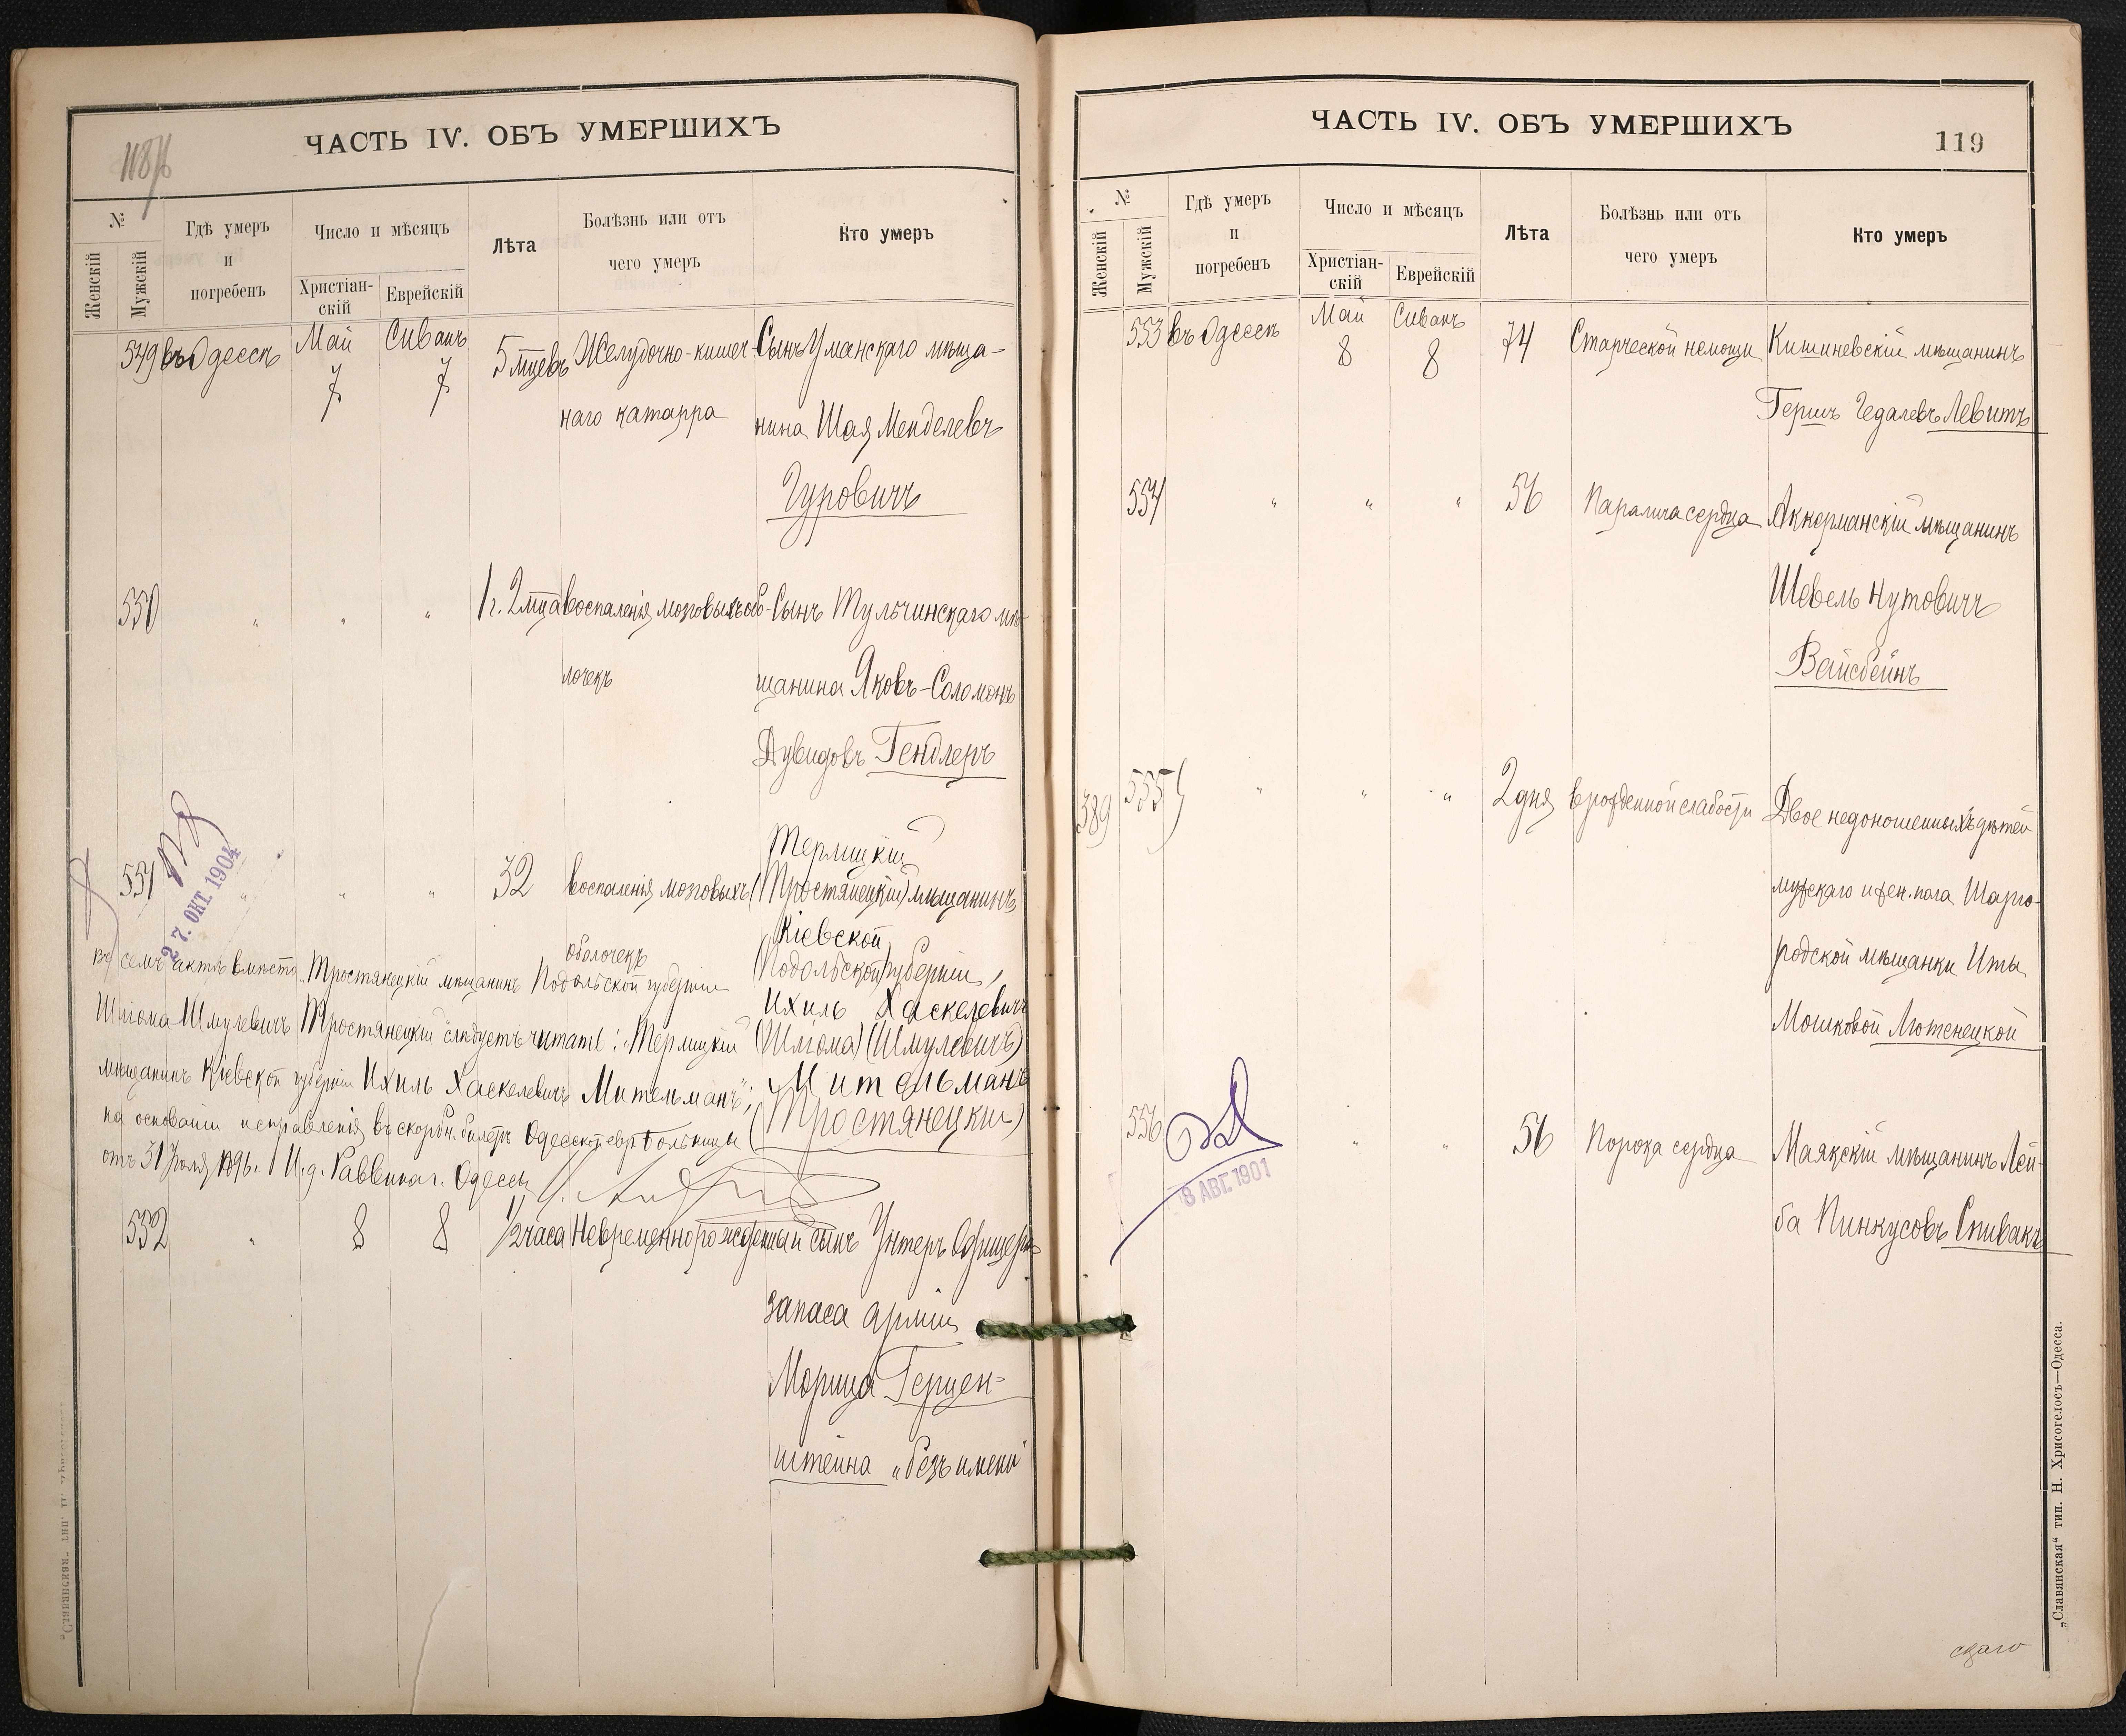 118 об
ЧАСТЬ IV. ОБЪ УМЕРШИХЪ
№
Женскій
Мужскій
Гдѣ умеръ
и
погребенъ
Число и мѣсяцъ
Христіан-
скій
Еврейскій
Лѣта
Болѣзнь или отъ
чего умеръ
Кто умеръ
549 въ Одессѣ Май 7 Сиванъ 7 5 мцевъ Желудочно-кишеч- Сынъ Уманскаго мѣща-
наго катарра нина Шая Менделевъ
Гуровичъ
550 " " " 1 г. 2 мца воспаленія мозговыхъ обо- Сынъ Тульчинскаго мѣ-
лочекъ щанина Яковъ-Соломонъ
Дувидовъ Гендлеръ
27. ОКТ. 1904
Терлицкій
551 " " " 32 воспаленія мозговыхъ (Тростянецкій) мѣщанинъ
Кіевской
оболочекъ (Подольской) губерніи,
Ихиль Хаскелевичъ
(Шлёма) (Шмулевичъ)
Мительманъ
(Тростянецкій)
Въ семъ актѣ вмѣсто "Тростянецкій мѣщанинъ Подольской губерніи
Шлёма Шмулевичъ Тростянецкій" слѣдуетъ читать: "Терлицкій
мѣщанинъ Кіевской губерніи Ихиль Хаскелевичъ Мительманъ";
на основаніи исправленія въ скорбн. билетѣ Одесской евр. больницы
отъ 31 Іюля 1896 г. И. д. Раввина г. Одессы
552 " 8 8 1/2 часа Невременнорожденный сынъ Унтеръ Офицера
запаса арміи
Морица Герцен-
штейна "безъ имени"
ЧАСТЬ IV. ОБЪ УМЕРШИХЪ
119
№
Женскій
Мужскій
Гдѣ умеръ
и
погребенъ
Число и мѣсяцъ
Христіан-
скій
Еврейскій
Лѣта
Болѣзнь или отъ
чего умеръ
Кто умеръ
553 въ Одессѣ Май 8 Сиванъ 8 74 Старческой немощи Кишиневскій мѣщанинъ
Гершъ Гедалевъ Левитъ
554 " " " 56 Паралича сердца Аккерманскій мѣщанинъ
Шевель Нутовичъ
Вайсбейнъ
389 555 " " " 2 дня врожденной слабости Двое недоношенныхъ дѣтей
мужскаго и жен. пола Шарго-
родской мѣщанки Иты
Мошковой Лютенецкой
556 " " 56 Порока сердца Маякскій мѣщанинъ Лей-
ба Пинкусовъ Спивакъ
8 АВГ. 1901
скаго
„Славянская“ тип. Н. Хрисогелосъ—Одесса.